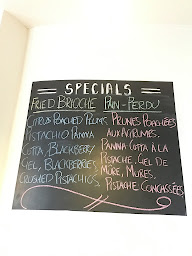 SPECIALS
FRIED BRIOCHE PAIN-PERDU
CITRUS POACHED PLUMS, PRUNES POACHÉES
PISTACHIO PANNA AUX AGRUMES,
COTTA, BLACKBERRY PANNA COTTA À LA
GEL, BLACKBERRIES, PISTACHE, GEL DE
CRUSHED PISTACHIOS MÛRE, MÛRES,
PISTACHE CONCASSÉES